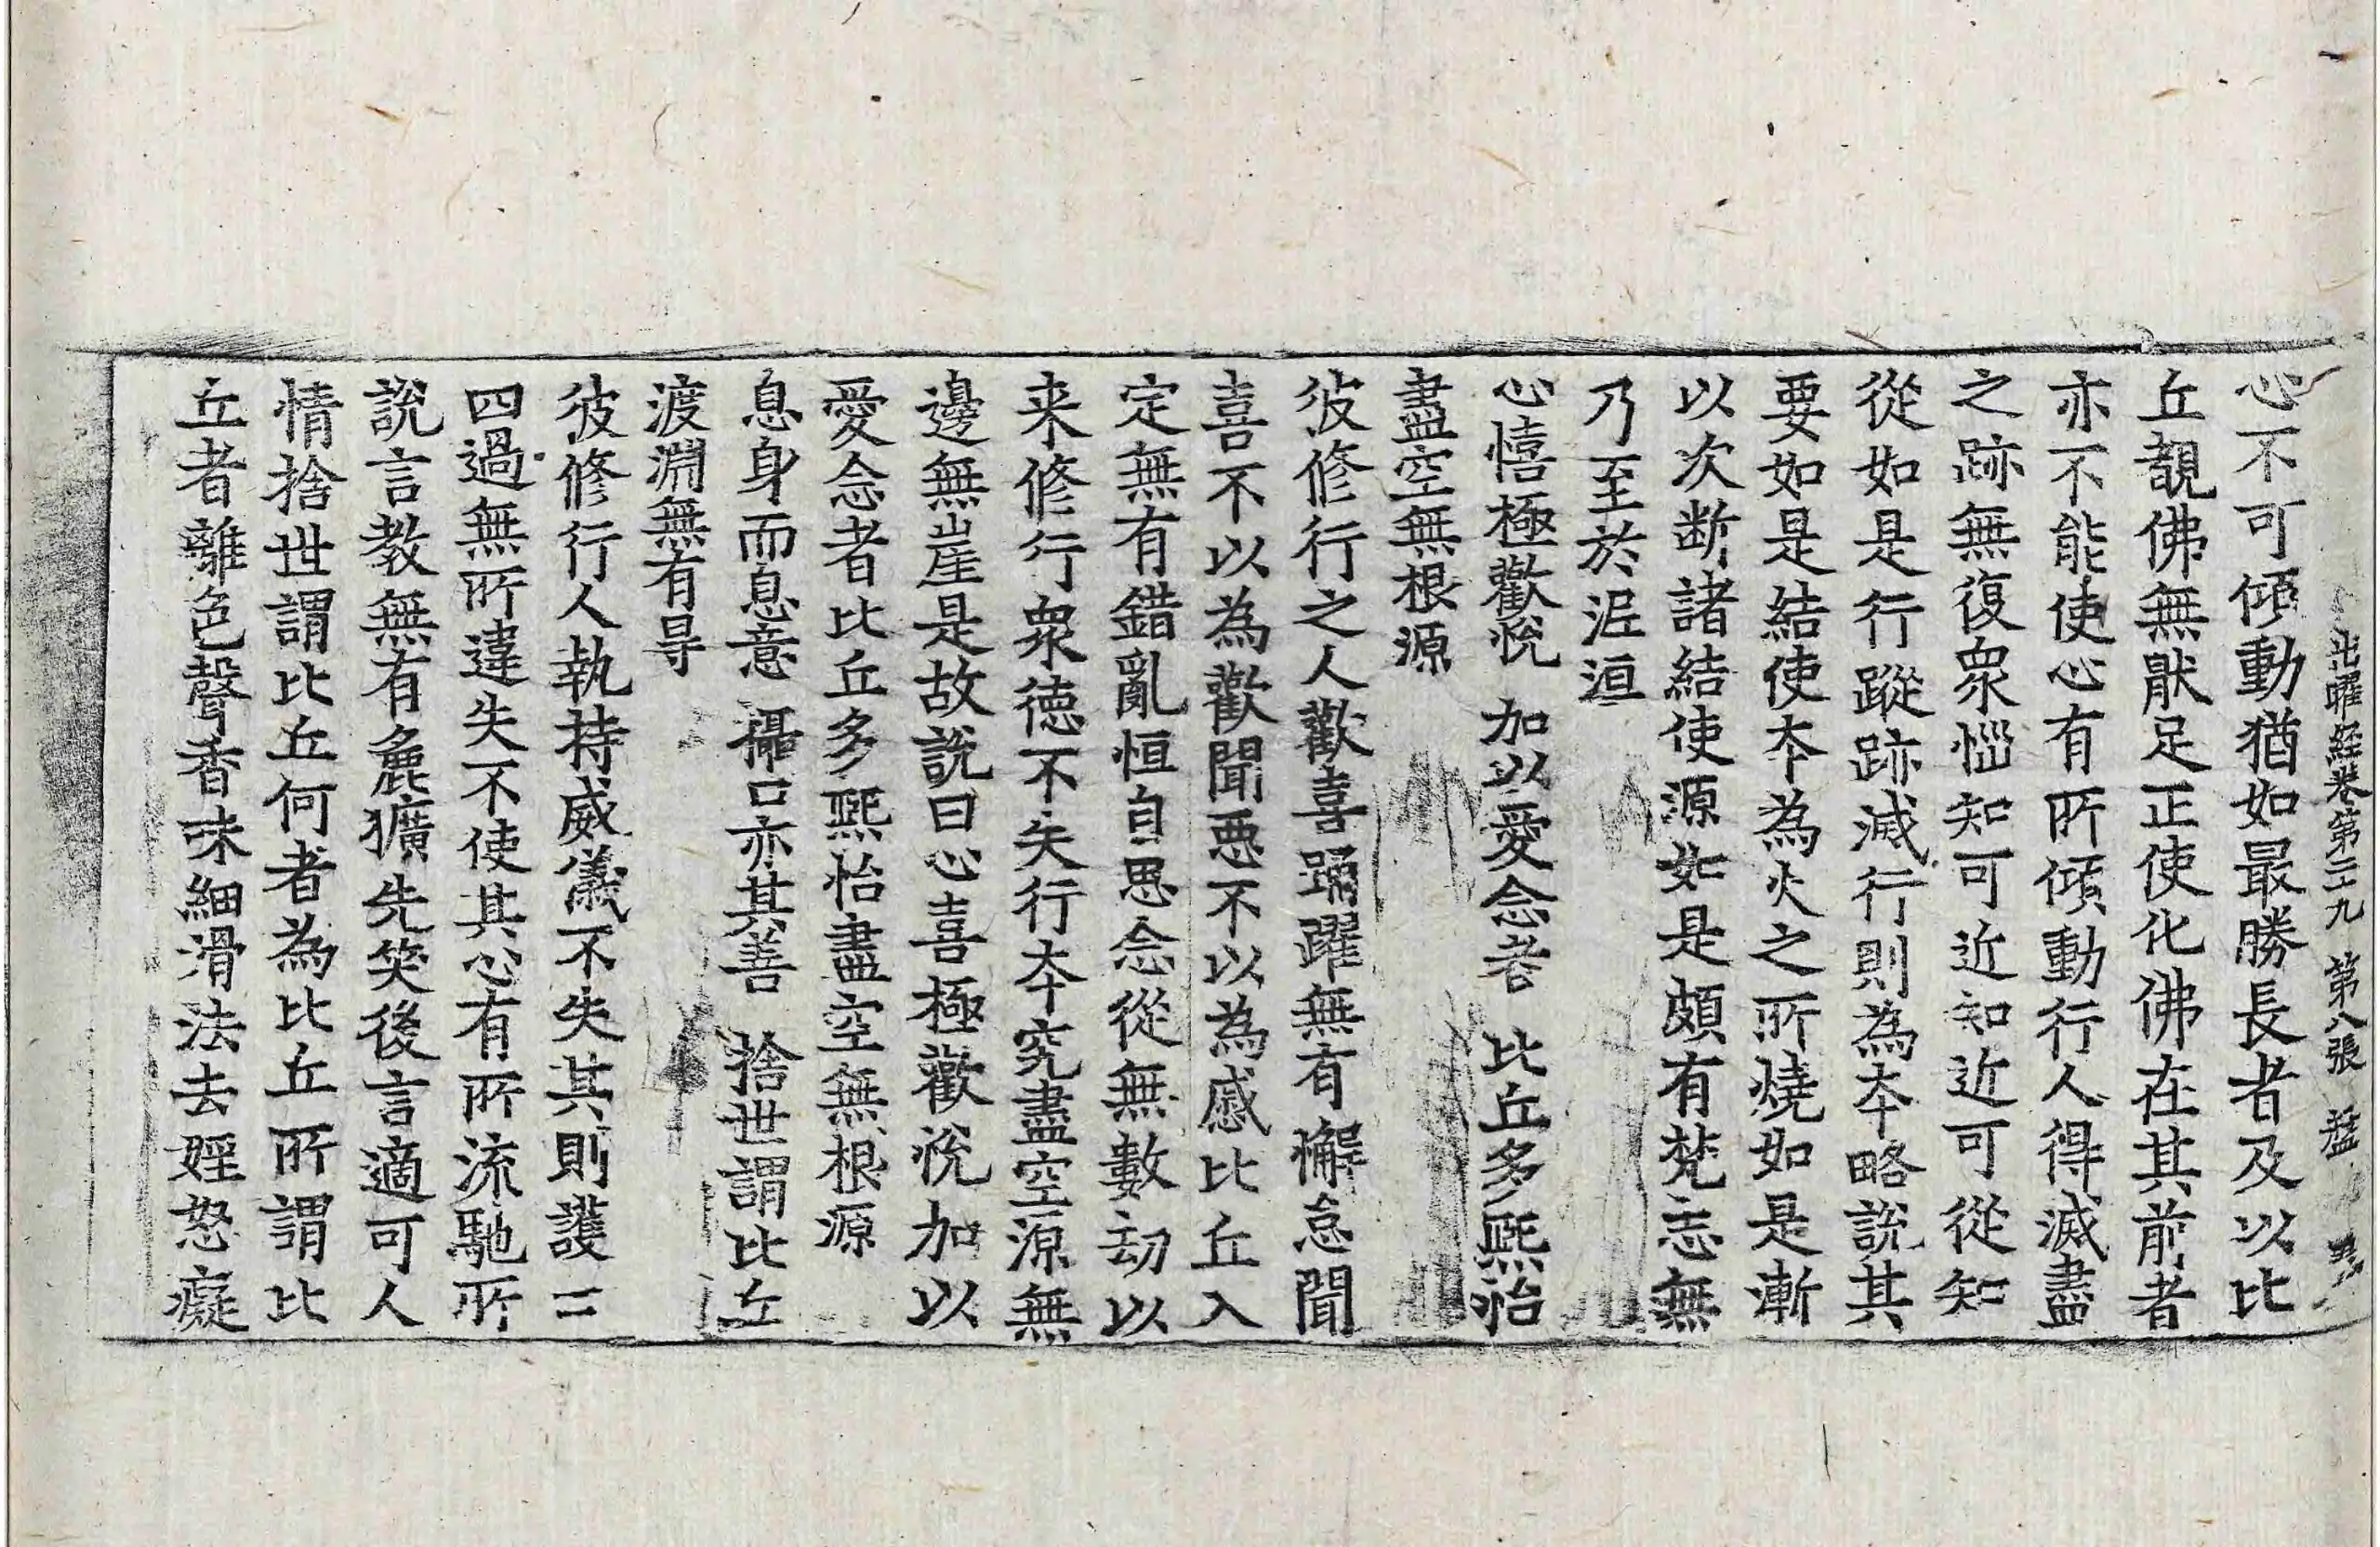 出曜經卷第二十九 第八張 猛
心不可傾動猶如最勝長者及以比
丘覩佛無猒足正使化佛在其前者
亦不能使心有所傾動行人得滅盡
之跡無復衆惱知可近知近可從知
從如是行蹤跡滅行則為夲略說其
要如是結使夲為火之所燒如是漸
以次断諸結使源如是頗有梵志無
乃至於泥洹
心憘極歡悅 加以愛念者 比丘多熙怡
盡空無根源
彼修行之人歡喜踊躍無有懈怠聞
喜不以為歡聞惡不以為慼比丘入
定無有錯亂恒自思念從無數劫以
来修行衆德不失行夲究盡空源無
邊無崖是故說曰心喜極歡悅加以
愛念者比丘多熙怡盡空無根源
息身而息意 攝口亦其善 捨世謂比丘
渡淵無有㝵
彼修行人執持威儀不失其則護三
四過無所違失不使其心有所流馳所
說言教無有麁獷先笑後言適可人
情捨世謂比丘何者為比丘所謂比
丘者離色聲香味細滑法去婬怒癡